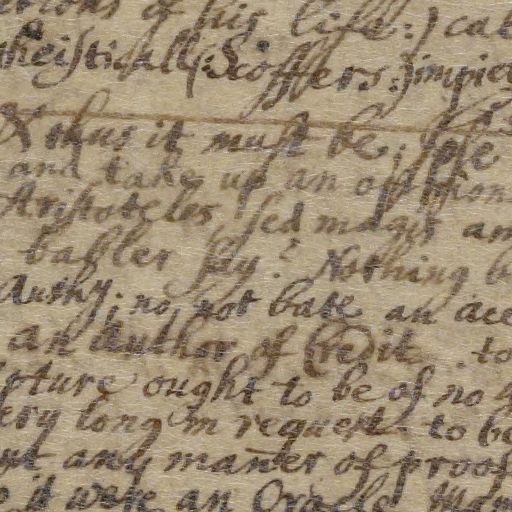 of his life:) cal
theistically (: Scoffers:) impiet
& thus it must be;
and take up an opinion
Aristoteles, sed magis am
babler say? Nothing b
Authy; no, not bate an ace
an Author of Credit to
ipture ought to be of no
ery long in request to be
ut any man̄er of proof
it were an Oracle